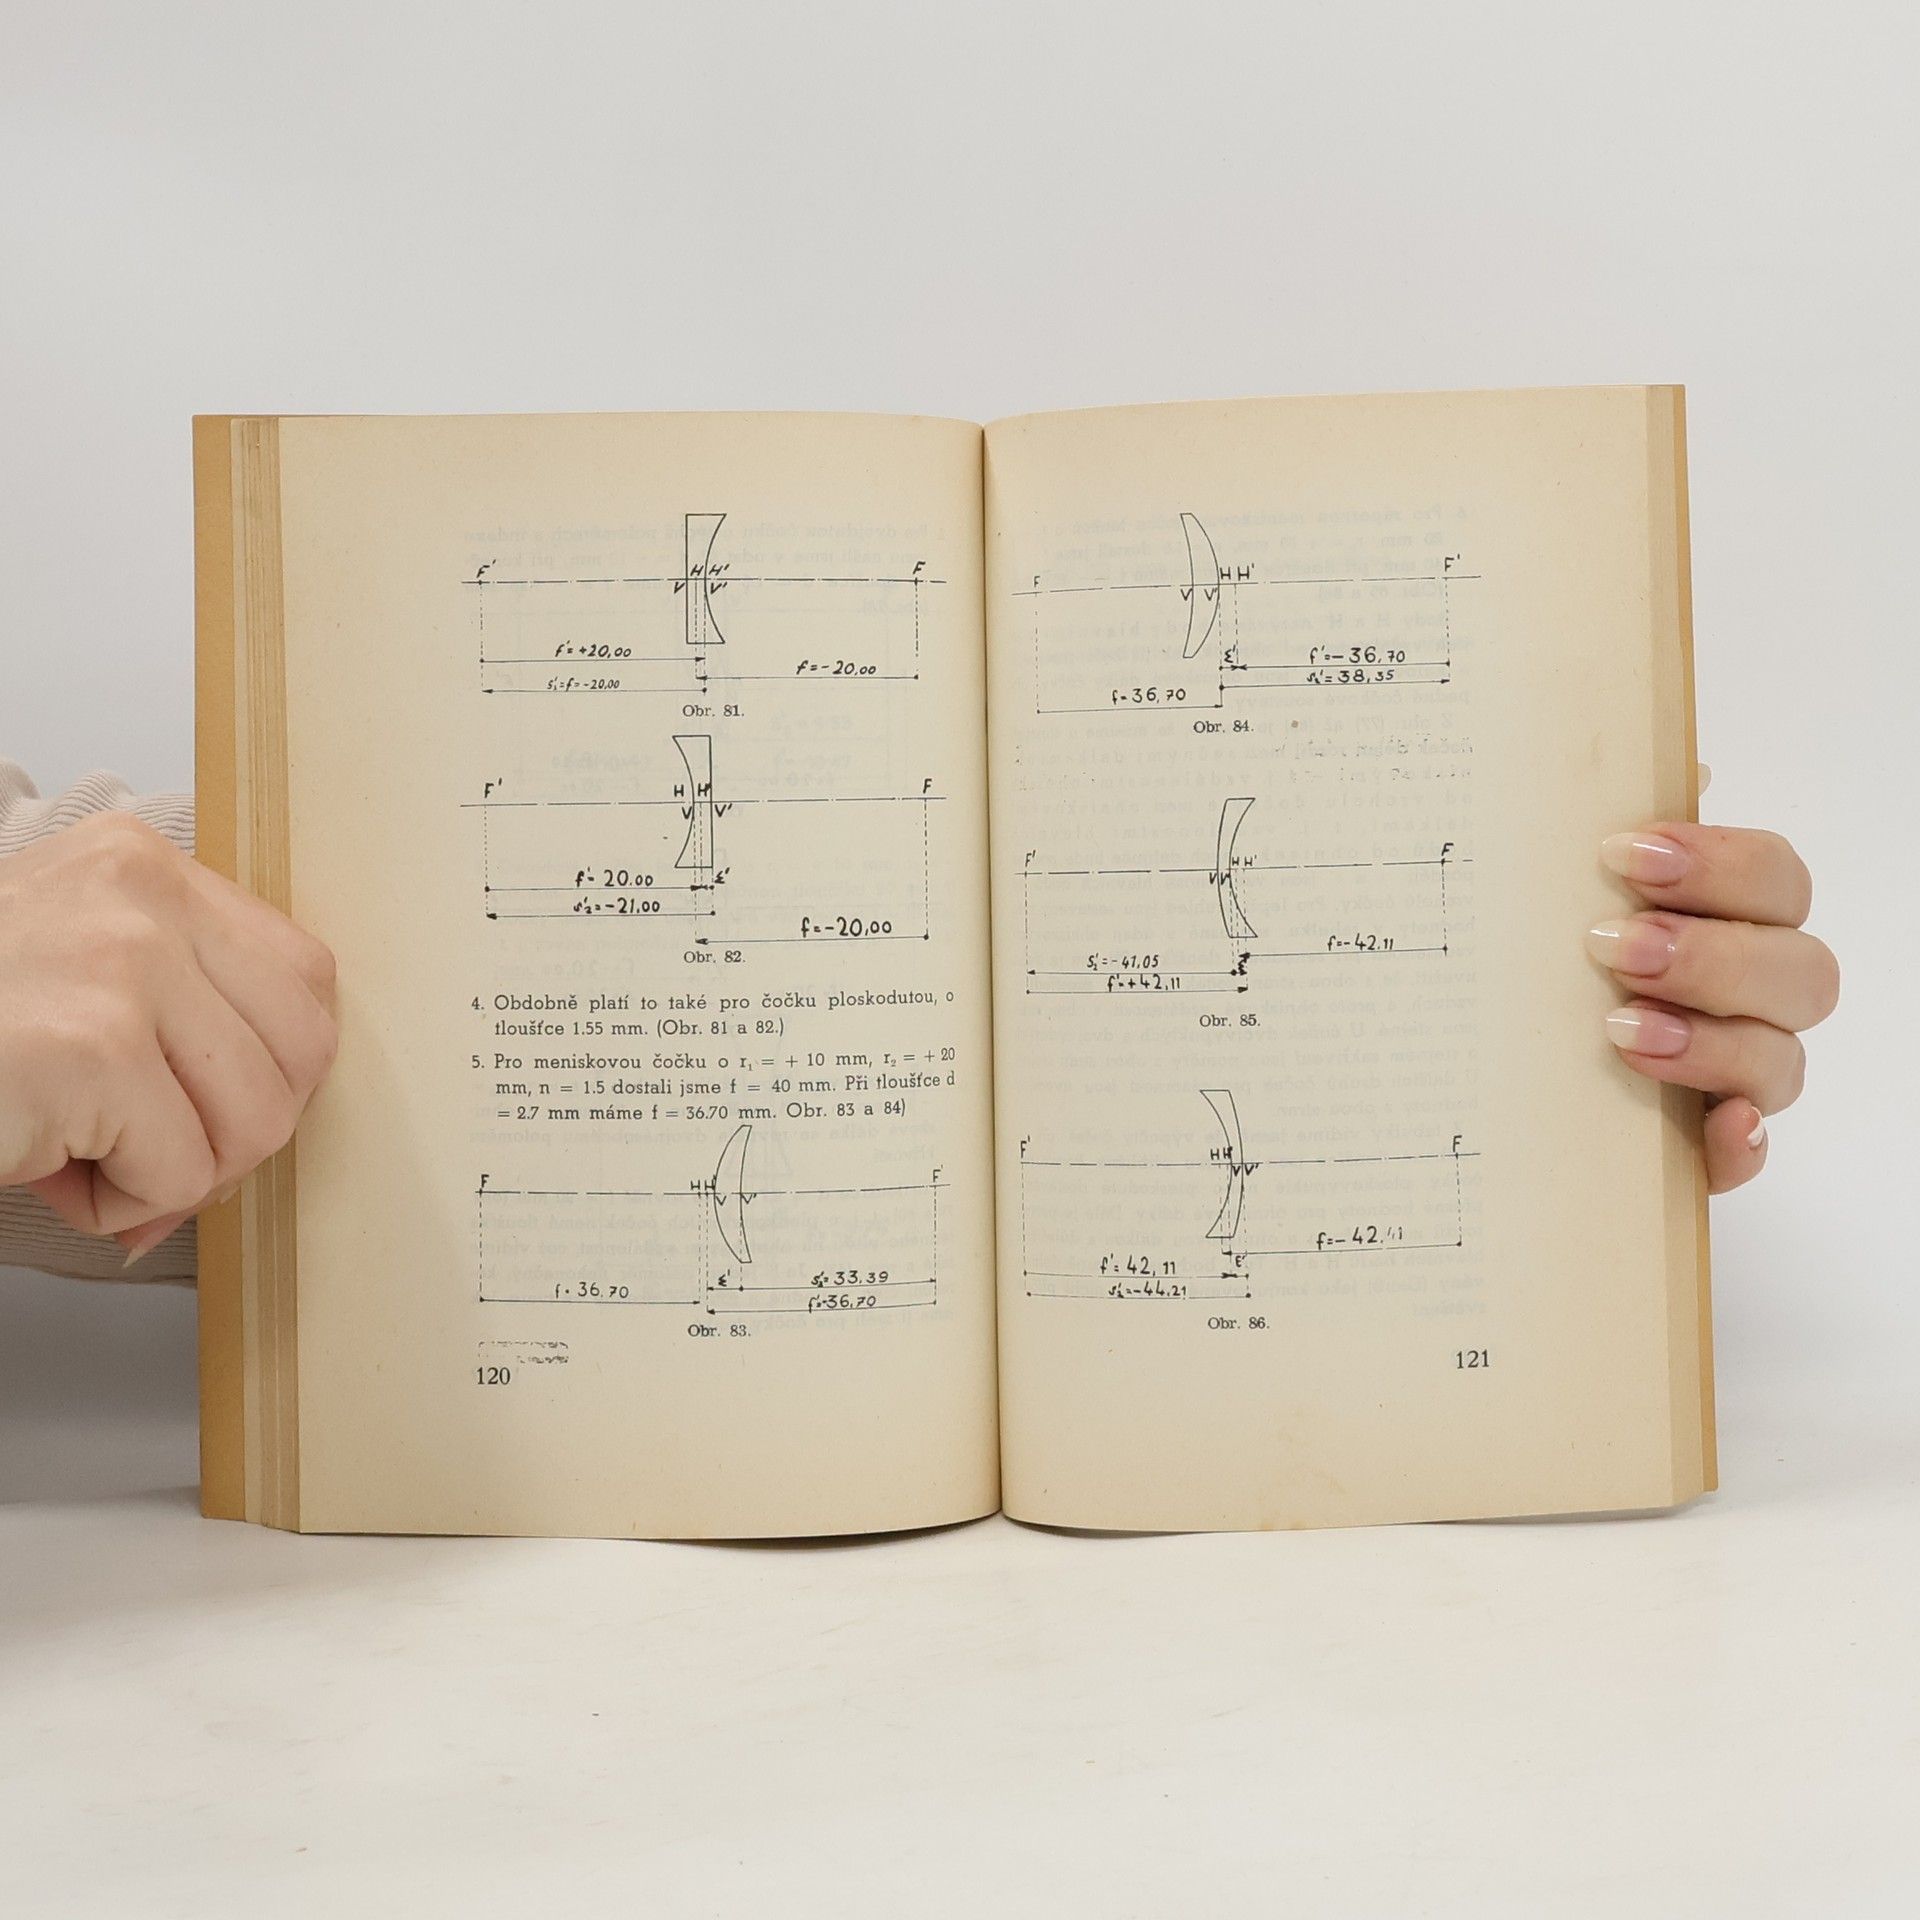 F' H H' F
V V'
f'=+20,00
f=-20,00
s'₂=f=-20,00
Obr. 81.
F' H H' F
V V'
f'= 20.00 ε'
s'₂=-21,00
f=-20,00
Obr. 82.
4. Obdobně platí to také pro čočku ploskodutou, o
tloušťce 1.55 mm. (Obr. 81 a 82.)
5. Pro meniskovou čočku o r₁ = + 10 mm, r₂ = + 20
mm, n = 1.5 dostali jsme f = 40 mm. Při tloušťce d
= 2.7 mm máme f = 36.70 mm. Obr. 83 a 84)
F H H' F'
V V'
f = 36.70 ε' s'₂= 33,39
f'=-36,70
Obr. 83.
120
F H H' F'
V V'
ε' f'=-36,70
s'₂= 38,35
f=36,70
Obr. 84.
F' H H' F
V V'
f=-42.11
s'₂=-41,05 ε'
f'=+42,11
Obr. 85.
F' H H' F
V V'
f=-42.11
f'= 42,11 ε'
s'₂=-44.21
Obr. 86.
121